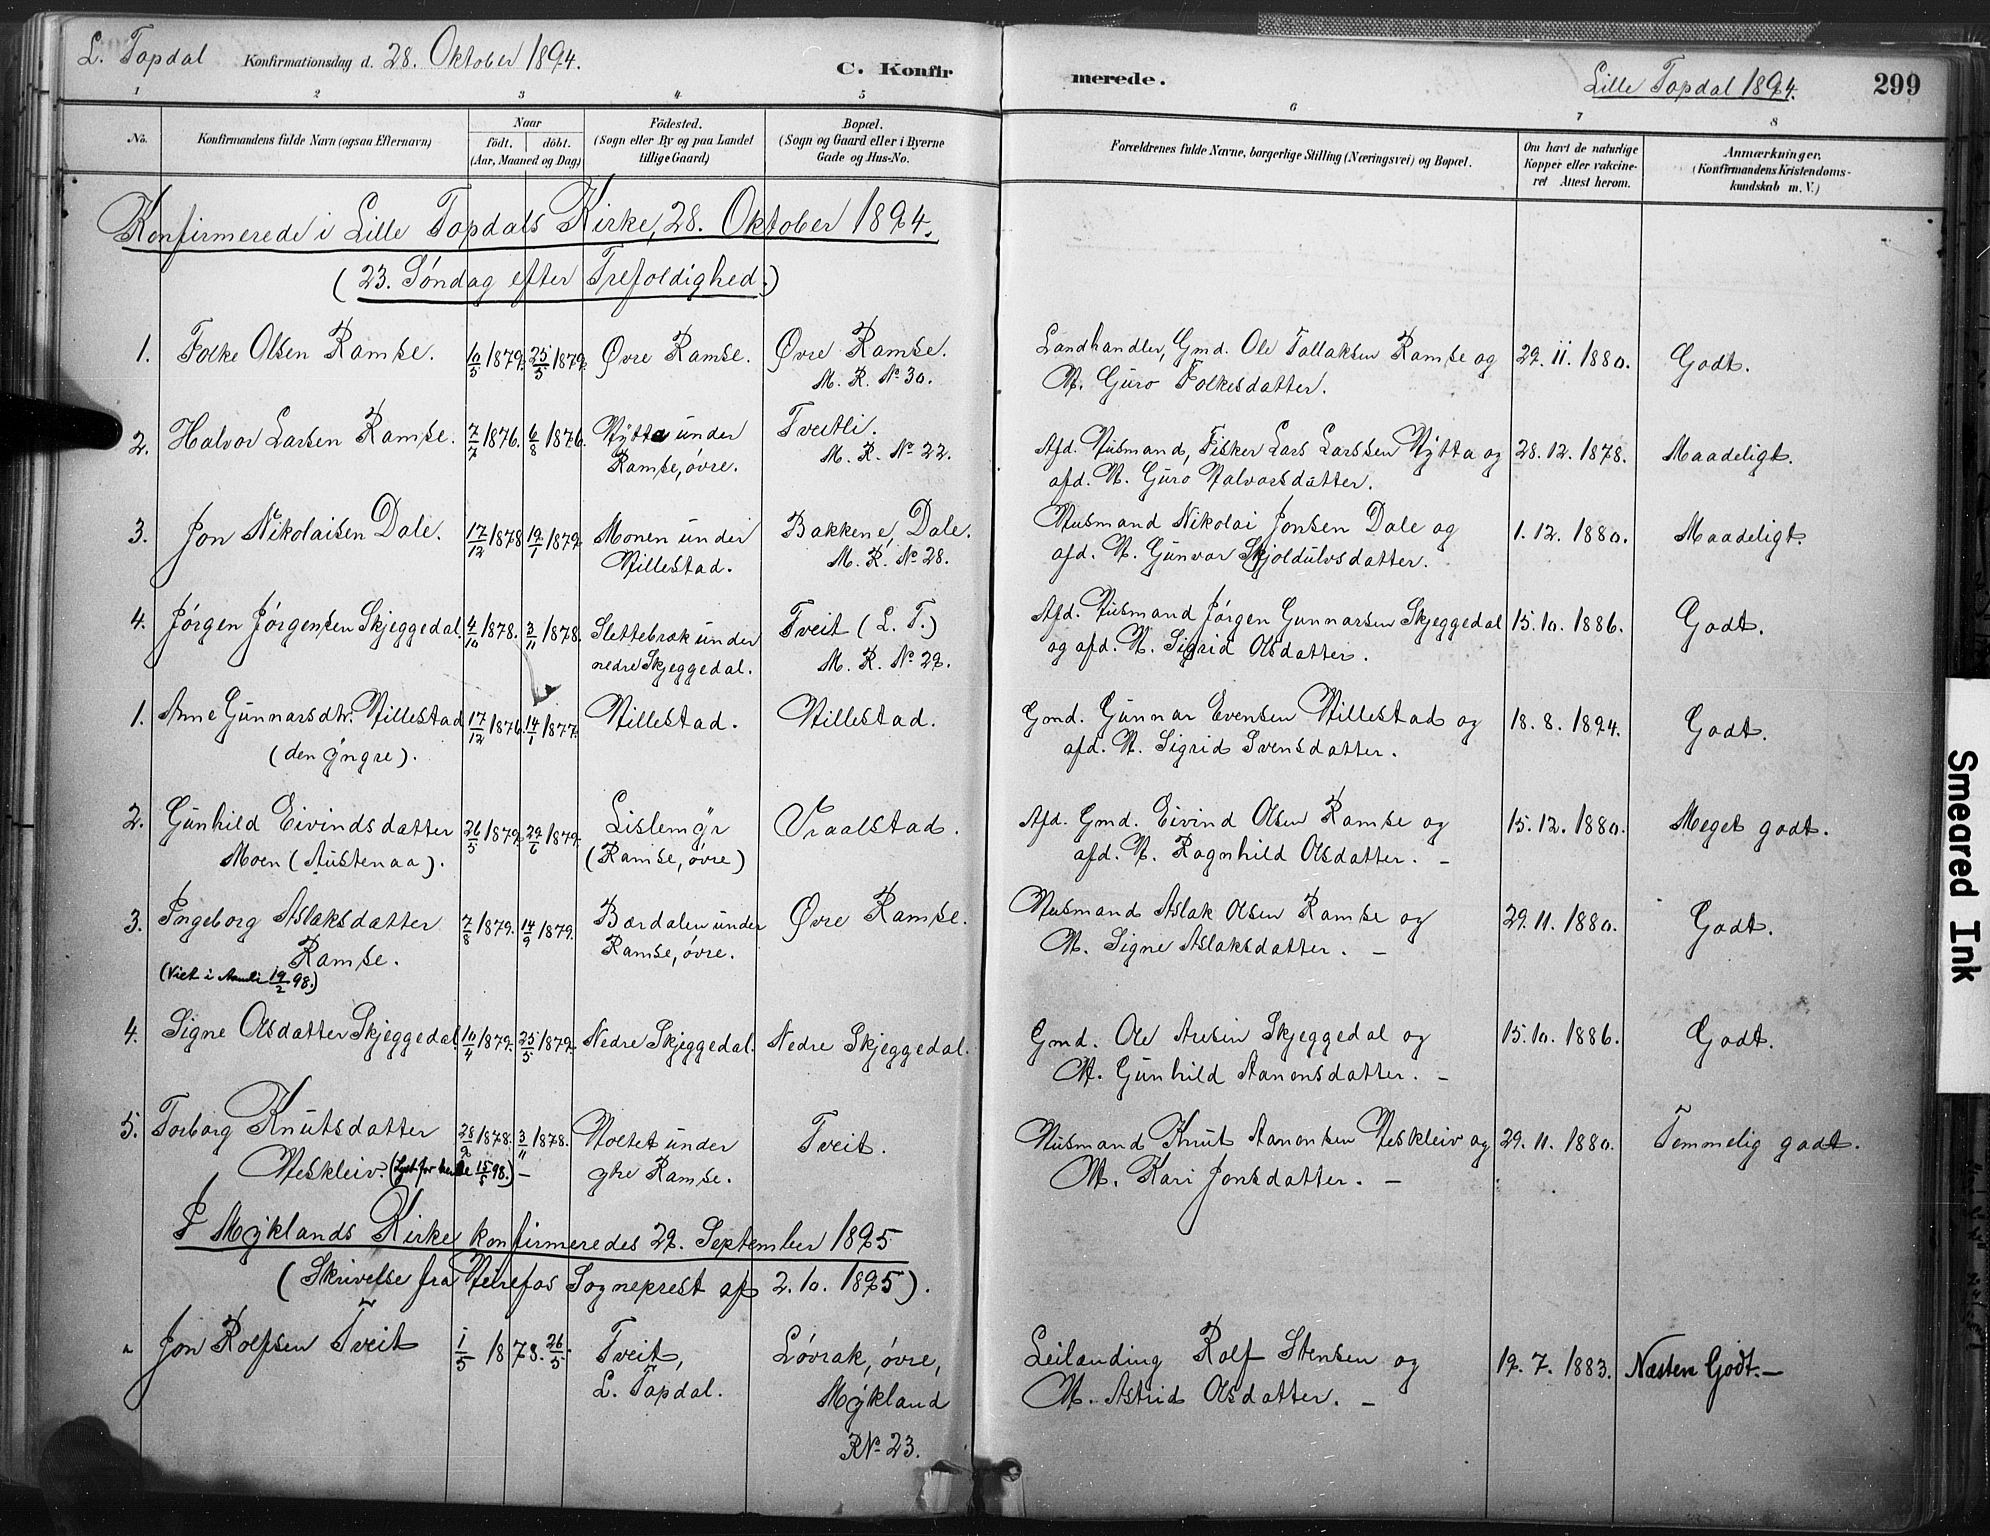 L. Topdal Konfirmationsdag d. 28. Oktober 1894. C. Konfirmerede. Lille Topdal 1894. 299
1 2 3 4 5 6 7 8
No. Konfirmandens fulde Navn (ogsaa Efternavn)
Naar
født. døbt.
(Aar, Maaned og Dag)
Fødested.
(Sogn eller By og paa Landet
tillige Gaard)
Bopæl.
(Sogn og Gaard eller i Byerne
Gade og Hus-No.
Forældrenes fulde Navne, borgerlige Stilling (Næringsvei) og Bopæl.
Om havt de naturlige
Kopper eller vakcine-
ret Attest herom.
Anmærkninger.
(Konfirmandens Kristendoms-
kundskab m. V.)
Konfirmerede i Lille Topdals Kirke, 28. Oktober 1894.
(23. Søndag efter Trefoldighed.)
1. Folke Olsen Ramse. 10/5 1879. 25/5 1879. Øvre Ramse. Øvre Ramse. Landhandler, Gmd. Ole Tallaksen Ramse og 29. 11. 1880. Godt.
M. R. No 30. H. Guro Folkesdatter.
2. Halvor Larsen Ramse. 7/7 1876. 6/8 1876. Hytta under Tveitli. Afd. Husmand, Fisker Lars Larssen Hytta og 28. 12. 1878. Maadeligt.
Ramse, øvre. M. R. No 22. afd. H. Guro Halvorsdatter.
3. Jon Nikolaisen Dale. 17/12 1878 19/1 1879. Monen under Bakkene, Dale. Husmand Nikolai Jonsen Dale og 1. 12. 1880. Maadeligt.
Hillestad. M. R. No 28. afd. H. Gunvor Skjoldulvsdatter.
4. Jørgen Jørgensen Skjeggedal. 4/10 1878. 3/11 1878. Slettebrok under Tveit (L. T.) Afd. Husmand Jørgen Gunnarsen Skjeggedal 15. 10. 1886. Godt.
nedre Skjeggedal. M. R. No 29. og afd. H. Sigrid Olsdatter.
1. Anne Gunnarsdtr. Hillestad 17/12 1876. 14/1 1877. Hillestad. Hillestad. Gmd. Gunnar Evensen Hillestad og 18. 8. 1894. Godt.
(den yngre). afd. H. Sigrid Svensdatter.
2. Gunhild Eivindsdatter 26/5 1879. 29/6 1879. Lislemyr Vraalstad. Afd. Gmd. Eivind Olsen Ramse og 15. 12. 1880. Meget godt.
Moen (Austenaa). (Ramse, øvre) afd. H. Ragnhild Olsdatter. –
3. Ingeborg Aslaksdatter 7/8 1879. 14/9 1879. Bærdalen under Øvre Ramse. Husmand Aslak Olsen Ramse og 29. 11. 1880. Godt.
Ramse. Ramse, øvre. H. Signe Aslaksdatter. –
(Viet i Aamli 19/2 98.)
4. Signe Olsdatter Skjeggedal. 10/4 1879. 25/5 1879. Nedre Skjeggedal. Nedre Skjeggedal. Gmd. Ole Aresen Skjeggedal og 15. 10. 1886. Godt.
H. Gunhild Aanonsdatter. –
5. Torborg Knutsdatter 28/9 1878. 3/11 1878. Holtet under Tveit. Husmand Knut Aanonsen Heskleiv og 29. 11. 1880. Temmelig godt.
Heskleiv. (Lyst for hende 15/5 98.) – øvre Ramse. H. Kari Jonsdatter. –
I Myklands Kirke konfirmeredes 29. September 1895
(Skrivelse fra Herefos Sogneprest af 2. 10. 1895).
Jon Rolfsen Tveit 1/5 1878. 26/5 Tveit, Løvrak, øvre, Leilænding Rolf Stensen og 19. 7. 1883. Næsten Godt. –
L. Topdal. Mykland H. Astrid Olsdatter. –
R No 23.
Smeared Ink